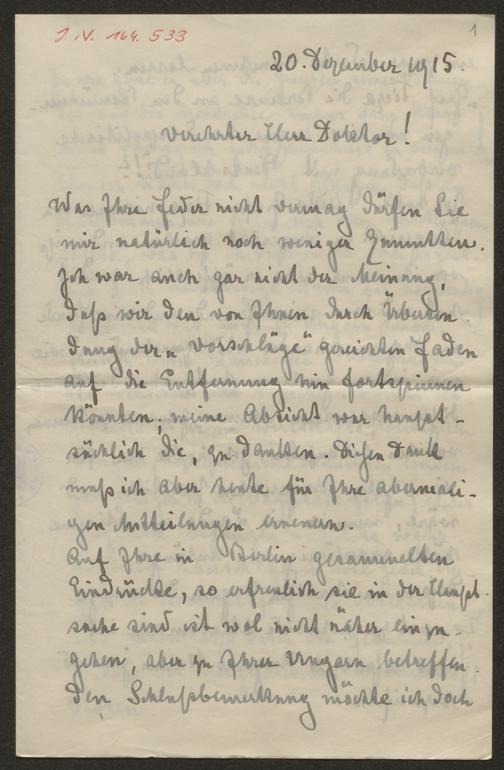 J. N. 164.533
1
20. Dezember 1915.
Verehrter Herr Doktor!
Was Ihre Feder nicht vermag dürfen Sie
mir natürlich noch weniger zumutten.
Ich war auch gar nicht der Meinung,
daß wir den von Ihnen durch Übersen-
dung der „Vorschläge" gereichten Faden
auf die Entfernung hin fortspinnen
könnten; meine Absicht war haupt-
sächlich die, zu danken. Diesen Dank
muß ich aber heute für Ihre abermali-
gen Mitteilungen erneuern.
Auf Ihre in Berlin gesammelten
Eindrücke, so erfreulich sie in der Haupt-
sache sind ist wol nicht näher einzu-
gehen, aber zu Ihrer Ungarn betreffen-
den Schlußbemerkung möchte ich doch